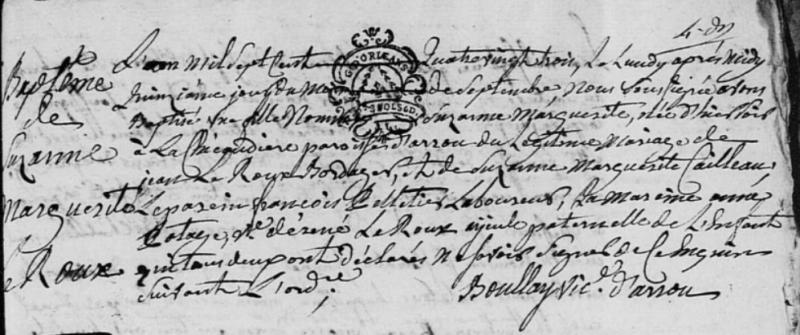 Baptême
de
Suzanne
Marguerite
Le Roux
L'an mil sept cent quatre vingt trois, le Lundy après midy
jour du mois de Septembre Nous soussigné avons
Baptisé une fille Nommée Suzanne Marguerite, née d'hier soir
à La paroisse d'arrou du Légitime Mariage de
jean Le Roux Bordager, et de Suzanne Marguerite Cailleau
Le parein françois Pelletier Laboureur, La mareine anne
ve. de rené Le Roux ayeule paternelle de L'enfant
qui tous deux ont déclarés ne savoir signer de ce
suivant L'ordre.
Boullay vic. d'arrou
G. D'ORLEANS